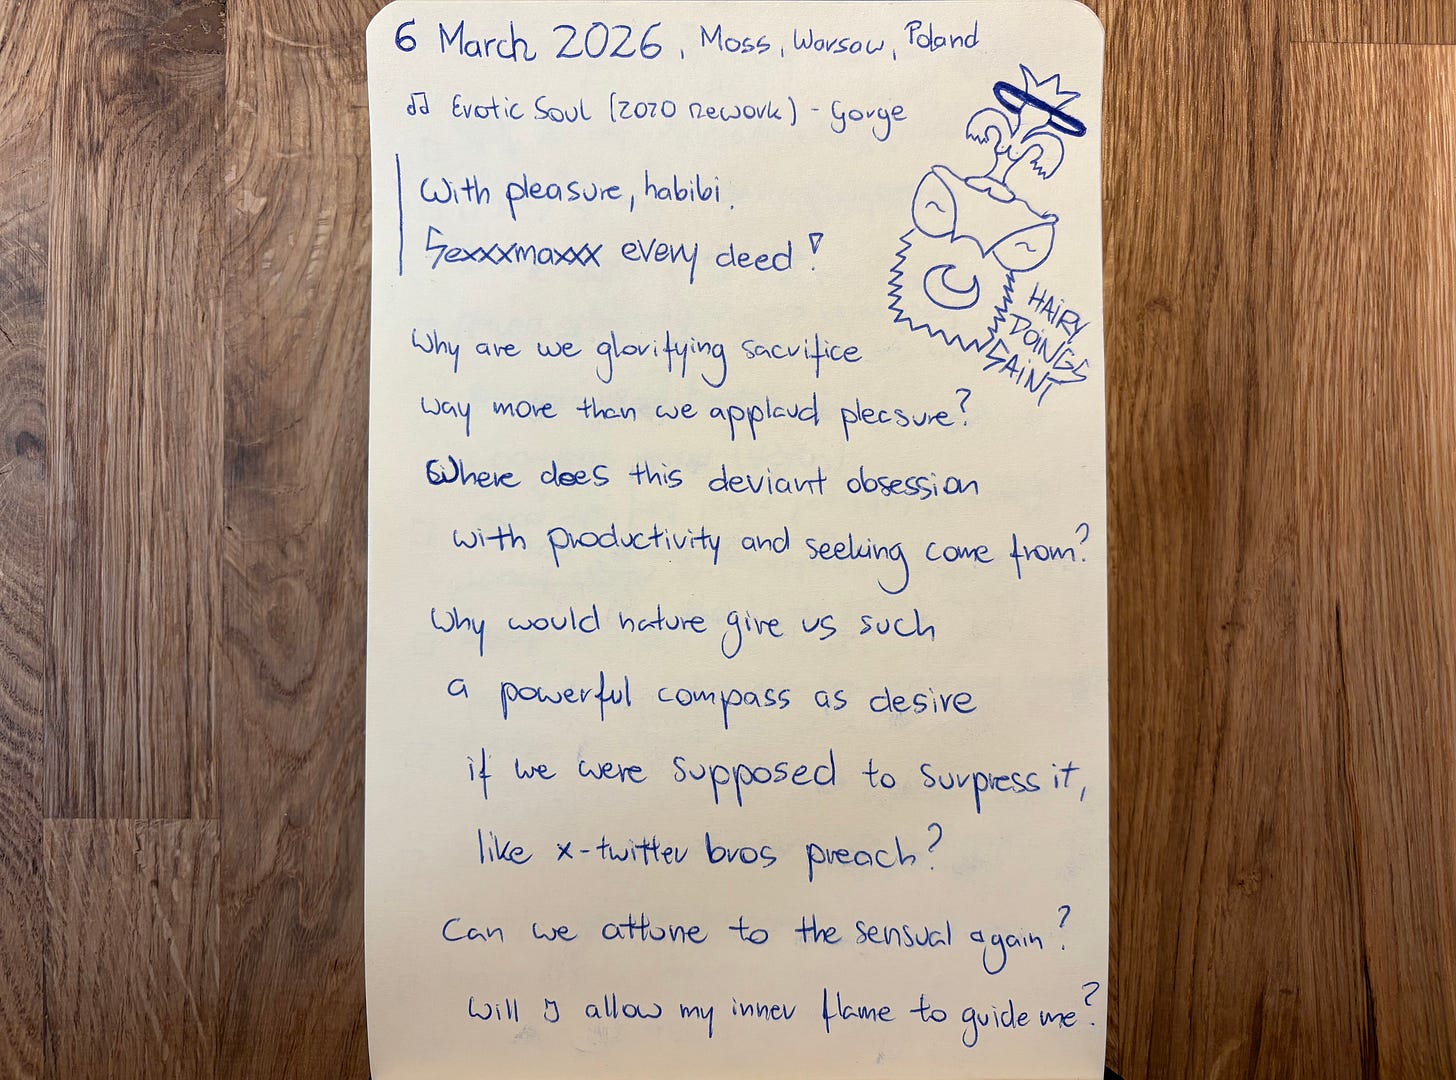 6 March 2026, Moss, Warsaw, Poland
♫ Erotic Soul (2020 rework) - Gorge
With pleasure, habibi.
Sexxxmaxxx every deed!
HAiRY
DOiNGS
SAiNT
Why are we glorifying sacrifice
way more than we applaud pleasure?
Where does this deviant obsession
with productivity and seeking come from?
Why would nature give us such
a powerful compass as desire
if we were supposed to surpress it,
like x-twitter bros preach?
Can we attune to the sensual again?
Will I allow my inner flame to guide me?